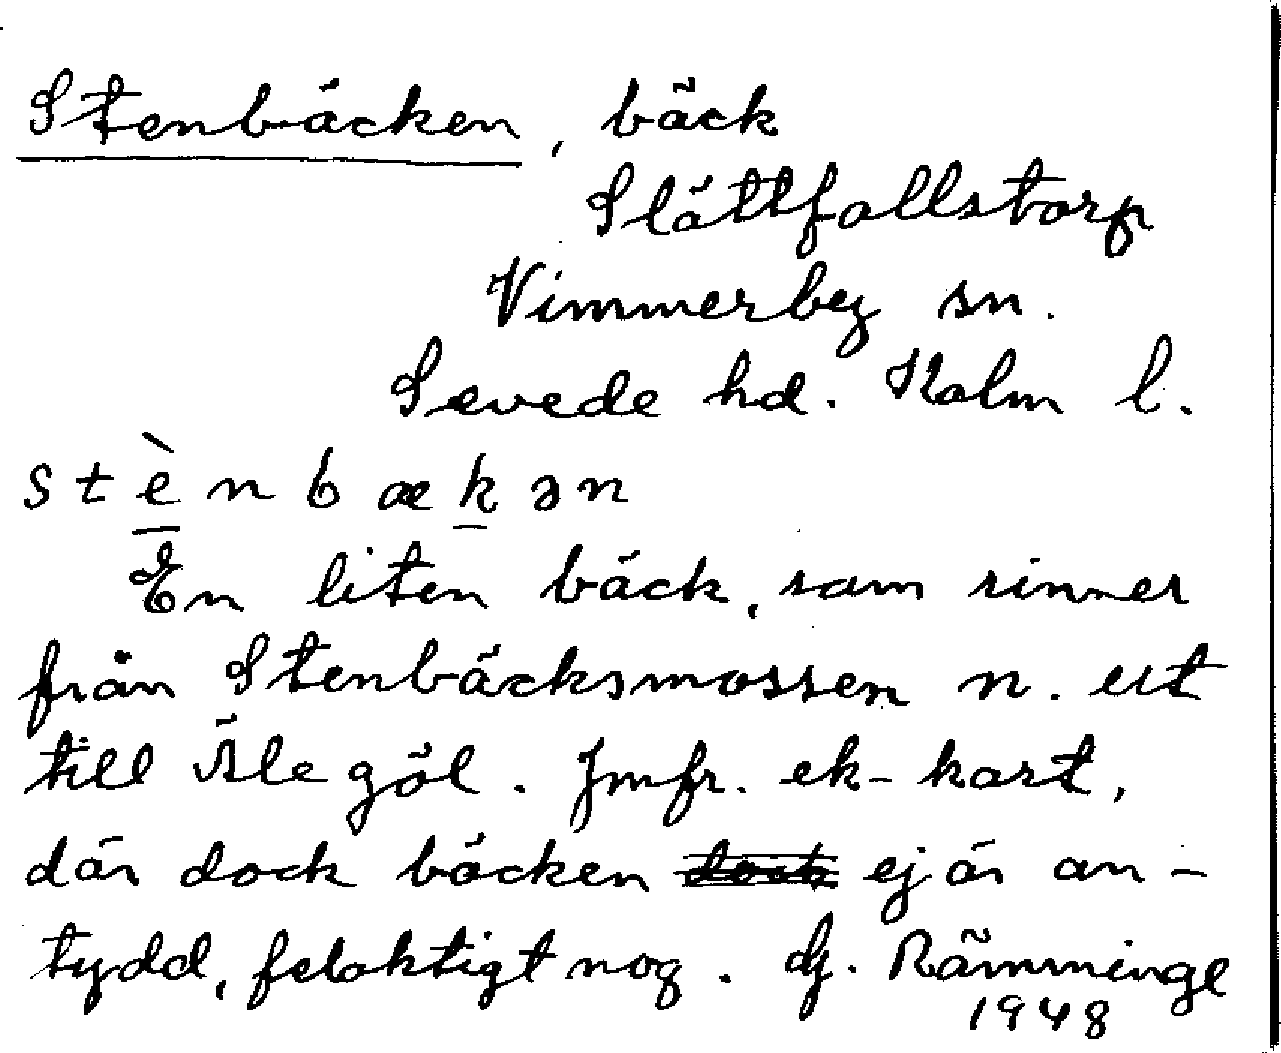 Stenbäcken, bäck
Slättfallstorp
Vimmerby sn.
Sevede hd. Kalm l.
stènbækən
En liten bäck, som rinner
från Stenbäcksmossen n. ut
till Äle göl. Jmfr. ek-kart,
där dock bäcken ej är an-
tydd, felaktigt nog. G. Rämminge
1948